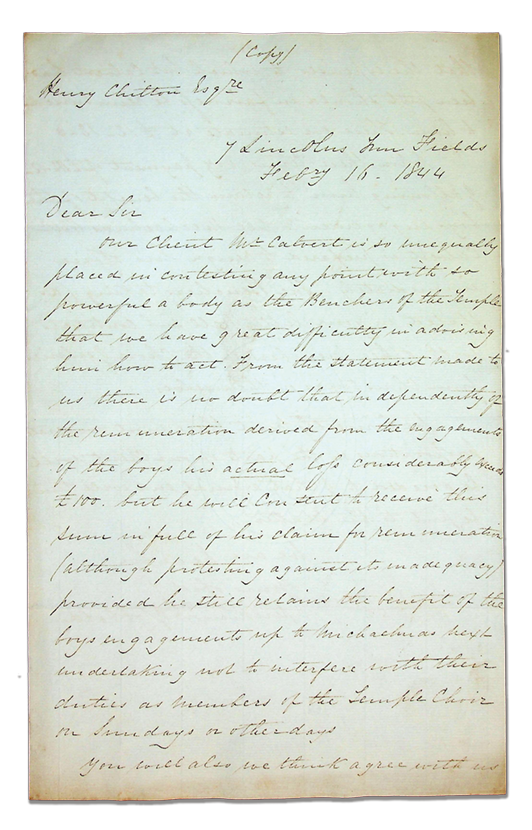 (Copy)
Henry Chilton Esqre
7 Lincolns Inn Fields
Febry 16. 1844
Dear Sir
Our Client Mr Calvert is so unequally
placed in contesting any point with so
powerful a body as the Benchers of the Temple
that we have great difficulty in advising
him how to act. From the statement made to
us there is no doubt that independently of
the remuneration derived from the engagements
of the boys his actual loss considerably exceeds
£100. but he will consent to receive this
sum in full of his claim for remuneration
(although protesting against its inadequacy)
provided he still retains the benefit of the
boys engagements up to Michaelmas next
undertaking not to interfere with their
duties as members of the Temple Choir
on Sundays or other days
You will also we think agree with us